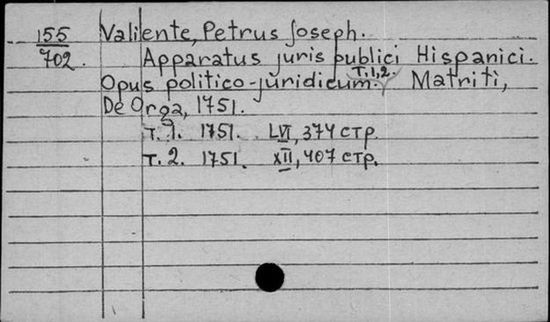 155 Valiente, Petrus Joseph.
702. Apparatus juris publici Hispanici.
Opus politico-juridicum. T. 1, 2. Matriti,
De Orga, 1751.
Т. 1. 1751. LVI, 374 стр.
Т. 2. 1751. XII, 407 стр.